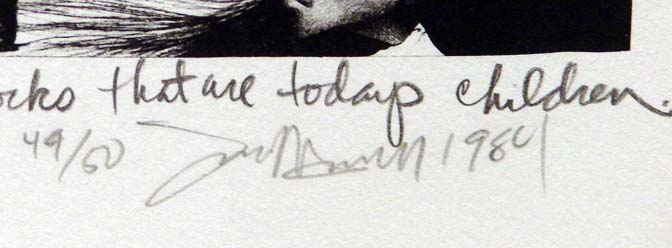 that are todays children.
49/50 1984